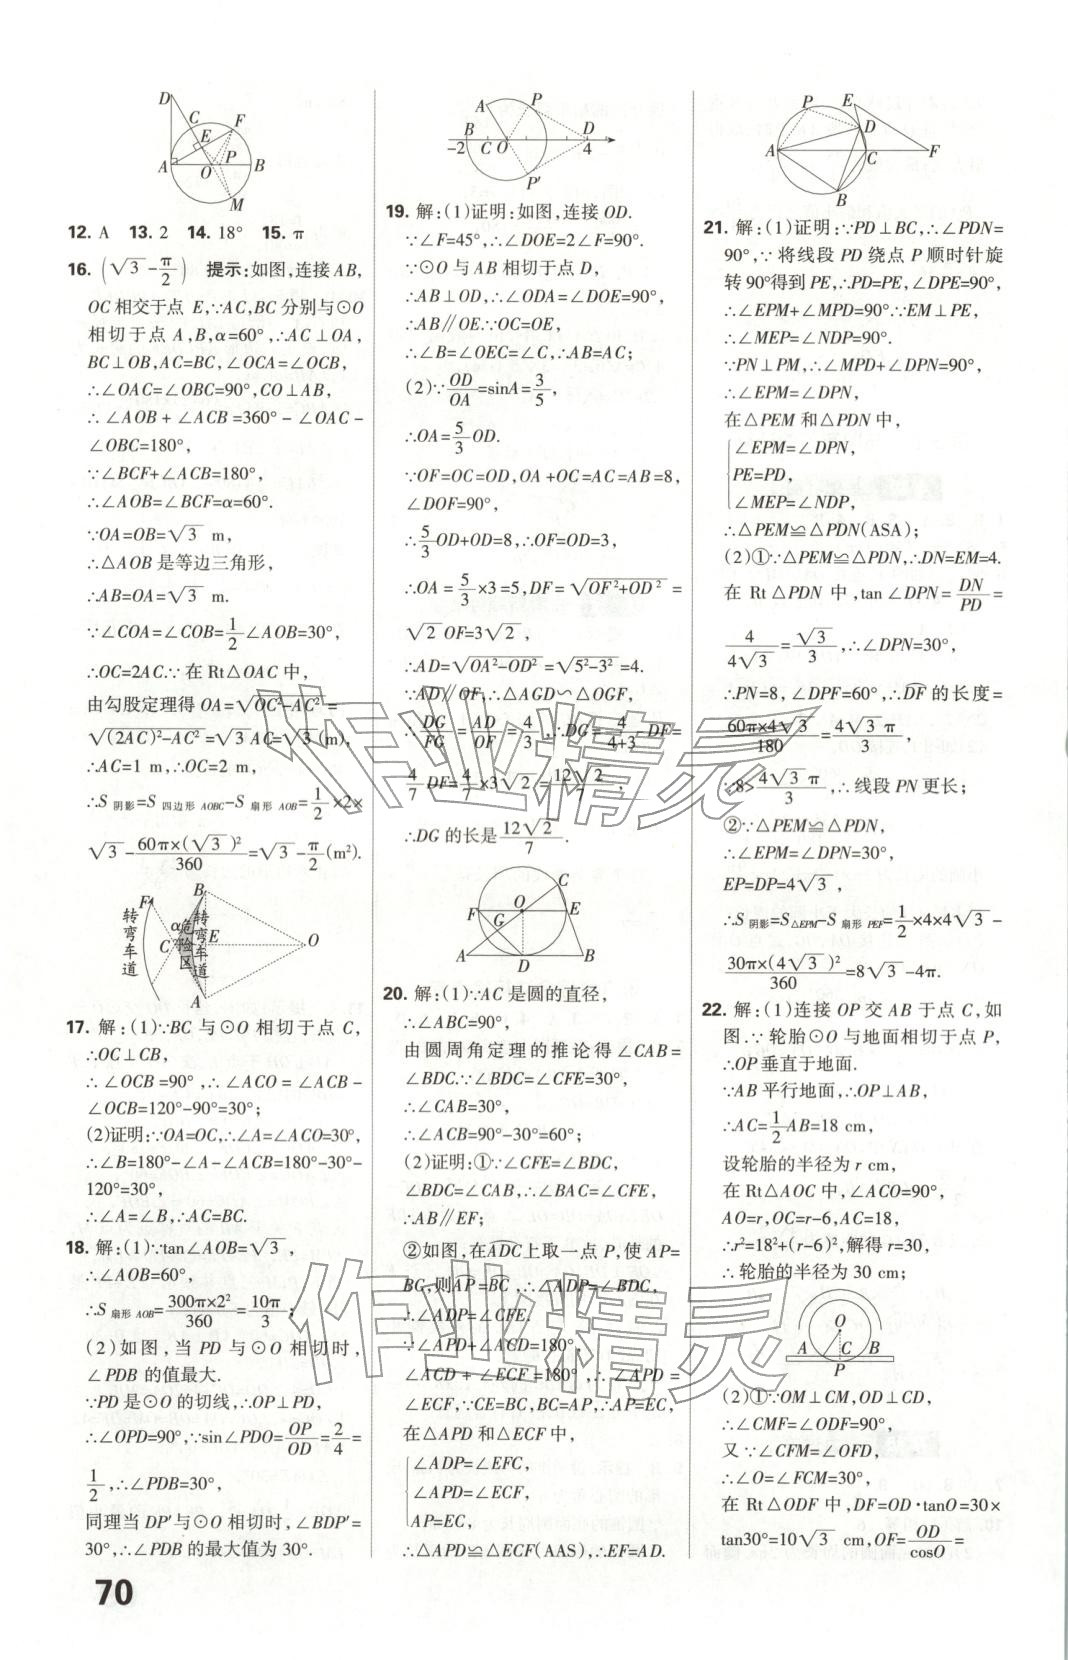 D
C
F
E
A
O
P
B
M
12. A  13. 2  14. 18°  15. π
16. (√3-π/2)  提示:如图,连接 AB,
OC 相交于点 E,∵AC,BC 分别与⊙O
相切于点 A,B,α=60°,∴AC⊥OA,
BC⊥OB,AC=BC,∠OCA=∠OCB,
∴∠OAC=∠OBC=90°,CO⊥AB,
∴∠AOB+∠ACB=360°-∠OAC-
∠OBC=180°,
∵∠BCF+∠ACB=180°,
∴∠AOB=∠BCF=α=60°.
∵OA=OB=√3 m,
∴△AOB 是等边三角形,
∴AB=OA=√3 m.
∵∠COA=∠COB=1/2∠AOB=30°,
∴OC=2AC.∵在 Rt△OAC 中,
由勾股定理得 OA=√(OC²-AC²)=
√((2AC)²-AC²)=√3AC=√3(m),
∴AC=1 m,∴OC=2 m,
∴S阴影=S四边形AOBC-S扇形AOB=1/2×2×
√3-60π×(√3)²/360=√3-π/2(m²).
B
F
转弯车道
α
C
危险区
转弯车道
E
O
A
17. 解:(1)∵BC 与⊙O 相切于点 C,
∴OC⊥CB,
∴∠OCB=90°,∴∠ACO=∠ACB-
∠OCB=120°-90°=30°;
(2)证明:∵OA=OC,∴∠A=∠ACO=30°,
∴∠B=180°-∠A-∠ACB=180°-30°-
120°=30°,
∴∠A=∠B,∴AC=BC.
18. 解:(1)∵tan∠AOB=√3,
∴∠AOB=60°,
∴S扇形AOB=300π×2²/360=10π/3;
(2)如图,当 PD 与⊙O 相切时,
∠PDB 的值最大.
∵PD 是⊙O 的切线,∴OP⊥PD,
∴∠OPD=90°,∵sin∠PDO=OP/OD=2/4=
1/2,∴∠PDB=30°,
同理当 DP′与⊙O 相切时,∠BDP′=
30°,∴∠PDB 的最大值为 30°.
70
A
P
B
D
-2
C
O
4
P′
19. 解:(1)证明:如图,连接 OD.
∵∠F=45°,∴∠DOE=2∠F=90°.
∵⊙O 与 AB 相切于点 D,
∴AB⊥OD,∴∠ODA=∠DOE=90°,
∴AB∥OE.∵OC=OE,
∴∠B=∠OEC=∠C,∴AB=AC;
(2)∵OD/OA=sinA=3/5,
∴OA=5/3OD.
∵OF=OC=OD,OA+OC=AC=AB=8,
∠DOF=90°,
∴5/3OD+OD=8,∴OF=OD=3,
∴OA=5/3×3=5,DF=√(OF²+OD²)=
√2OF=3√2,
∴AD=√(OA²-OD²)=√(5²-3²)=4.
∵AD∥OF,∴△AGD∽△OGF,
∴DG/FG=AD/OF=4/3,∴DG=4/(4+3)DF=
4/7DF=4/7×3√2=12√2/7,
∴DG 的长是12√2/7.
C
O
F
E
G
A
D
B
20. 解:(1)∵AC 是圆的直径,
∴∠ABC=90°,
由圆周角定理的推论得∠CAB=
∠BDC.∵∠BDC=∠CFE=30°,
∴∠CAB=30°,
∴∠ACB=90°-30°=60°;
(2)证明:①∵∠CFE=∠BDC,
∠BDC=∠CAB,∴∠BAC=∠CFE,
∴AB∥EF;
②如图,在ADC上取一点 P,使 AP=
BC,则AP=BC,∴∠ADP=∠BDC,
∴∠ADP=∠CFE.
∵∠APD+∠ACD=180°,
∠ACD+∠ECF=180°,∴∠APD=
∠ECF,∵CE=BC,BC=AP,∴AP=EC,
在△APD 和△ECF 中,
∠ADP=∠EFC,
∠APD=∠ECF,
AP=EC,
∴△APD≌△ECF(AAS),∴EF=AD.
P
E
D
A
C
F
B
21. 解:(1)证明:∵PD⊥BC,∴∠PDN=
90°,∵将线段 PD 绕点 P 顺时针旋
转 90°得到 PE,∴PD=PE,∠DPE=90°,
∴∠EPM+∠MPD=90°∵EM⊥PE,
∴∠MEP=∠NDP=90°.
∵PN⊥PM,∴∠MPD+∠DPN=90°,
∴∠EPM=∠DPN,
在△PEM 和△PDN 中,
∠EPM=∠DPN,
PE=PD,
∠MEP=∠NDP,
∴△PEM≌△PDN(ASA);
(2)①∵△PEM≌△PDN,∴DN=EM=4.
在 Rt△PDN 中,tan∠DPN=DN/PD=
4/(4√3)=√3/3,∴∠DPN=30°,
∴PN=8,∠DPF=60°,∴DF的长度=
60π×4√3/180=4√3π/3,
∵8>4√3π/3,∴线段 PN 更长;
②∵△PEM≌△PDN,
∴∠EPM=∠DPN=30°,
EP=DP=4√3,
∴S阴影=S△EPM-S扇形PEF=1/2×4×4√3-
30π×(4√3)²/360=8√3-4π.
22. 解:(1)连接 OP 交 AB 于点 C,如
图.∵轮胎⊙O 与地面相切于点 P,
∴OP 垂直于地面.
∵AB 平行地面,∴OP⊥AB,
∴AC=1/2AB=18 cm,
设轮胎的半径为 r cm,
在 Rt△AOC 中,∠ACO=90°,
AO=r,OC=r-6,AC=18,
∴r²=18²+(r-6)²,解得 r=30,
∴轮胎的半径为 30 cm;
O
A
C
B
P
(2)①∵OM⊥CM,OD⊥CD,
∴∠CMF=∠ODF=90°.
又∵∠CFM=∠OFD,
∴∠O=∠FCM=30°,
在 Rt△ODF 中,DF=OD·tanO=30×
tan30°=10√3 cm,OF=OD/cosO=
作业精灵
作业精灵